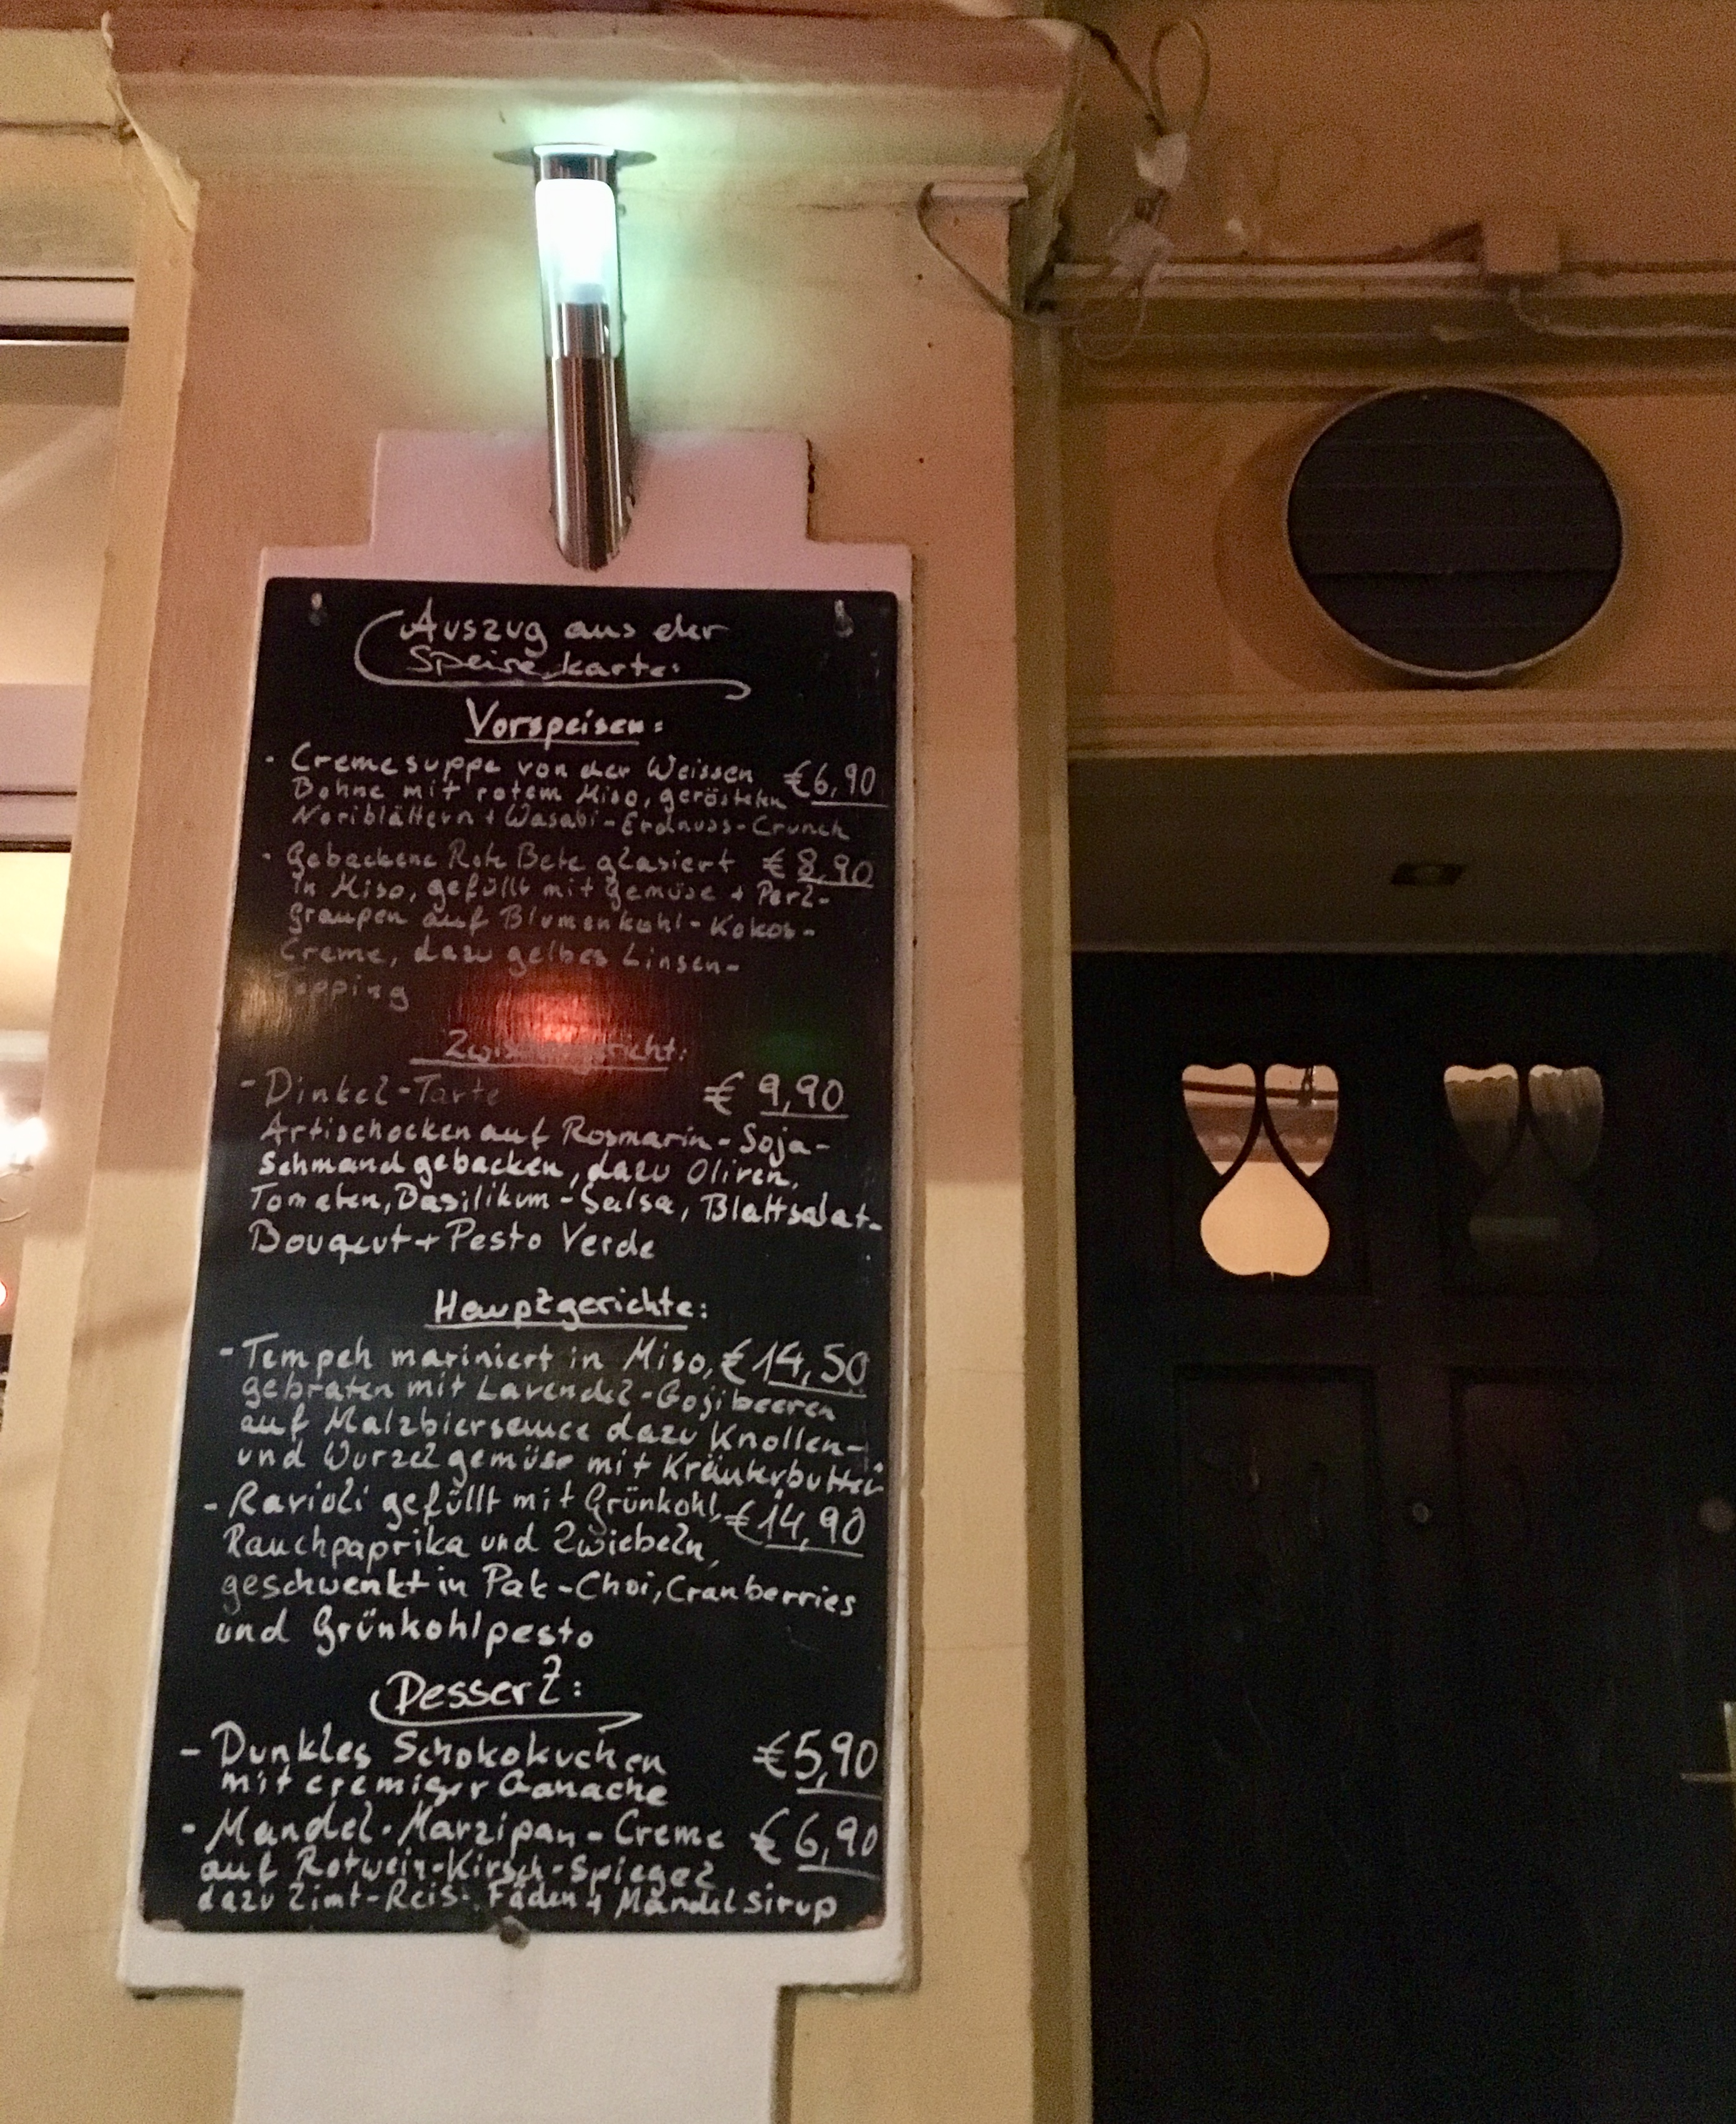 Auszug aus der
Speisekarte:
Vorspeisen:
- Cremesuppe von der Weissen €6,90
Bohne mit rotem Miso, gerösteten
Noriblättern + Wasabi-Erdnuss-Crunch
- Gebackene Rote Bete glasiert €8,90
in Miso, gefüllt mit Gemüse + Perl-
graupen auf Blumenkohl-Kokos-
Creme, dazu gelbes Linsen-
Topping
Zwischengericht:
- Dinkel-Tarte € 9,90
Artischocken auf Rosmarin-Soja-
Schmand gebacken, dazu Oliven,
Tomaten, Basilikum-Salsa, Blattsalat-
Bouqeut + Pesto Verde
Hauptgerichte:
- Tempeh mariniert in Miso, €14,50
gebraten mit Lavendel-Gojibeeren
auf Malzbiersauce dazu Knollen-
und Wurzelgemüse mit Kräuterbutter
- Ravioli gefüllt mit Grünkohl, €14,90
Rauchpaprika und Zwiebeln,
geschwenkt in Pak-Choi, Cranberries
und Grünkohlpesto
Dessert:
- Dunkles Schokokuchen €5,90
mit cremiger Ganache
- Mandel-Marzipan-Creme €6,90
auf Rotwein-Kirsch-Spiegel
dazu Zimt-Reis-Fäden + Mandelsirup